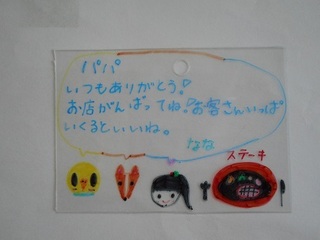 パパ
いつもありがとう!
お店がんばってね!お客さんいっぱ
いくるといいね。
なな
ステーキ